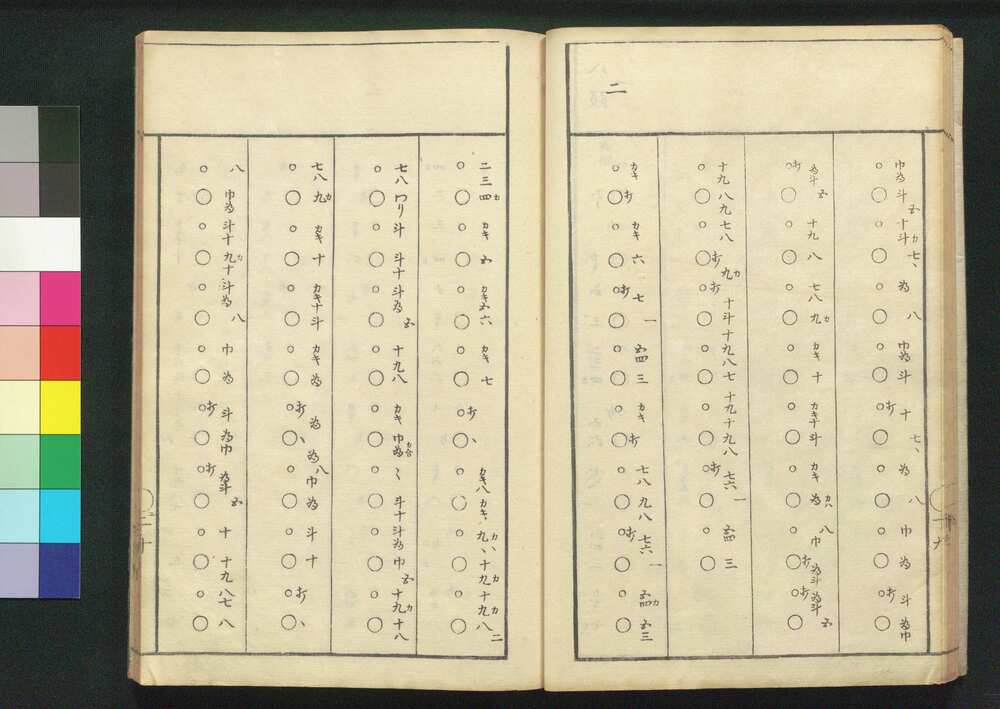 二
巾為斗五十斗カ七、為八巾為斗オ十七、為八巾為オ斗為巾
オ為斗五十九八七八九カカキ十カキ十斗カキ為カハ八巾オ為斗オ為斗五
十九八九七八オ九カオ十斗十九八七十九十九八オ七六一五四三
カキオカキ六オ七一五四三カキオ七八九八オ七六一五四カ五三
二三四カカキ五カキ五六カキ七オ、カキ八カキ、九カ、十九カ十九八カ二
七八ワリ斗斗十斗為五十九八カキ巾為カ合斗十斗為巾五十九カ十八
七八九カカキ十カキ十斗カキ為オ、為為八巾為斗十オ、
八巾為斗十九カ十斗為八巾為オ斗為巾オ為斗五十十九八七八